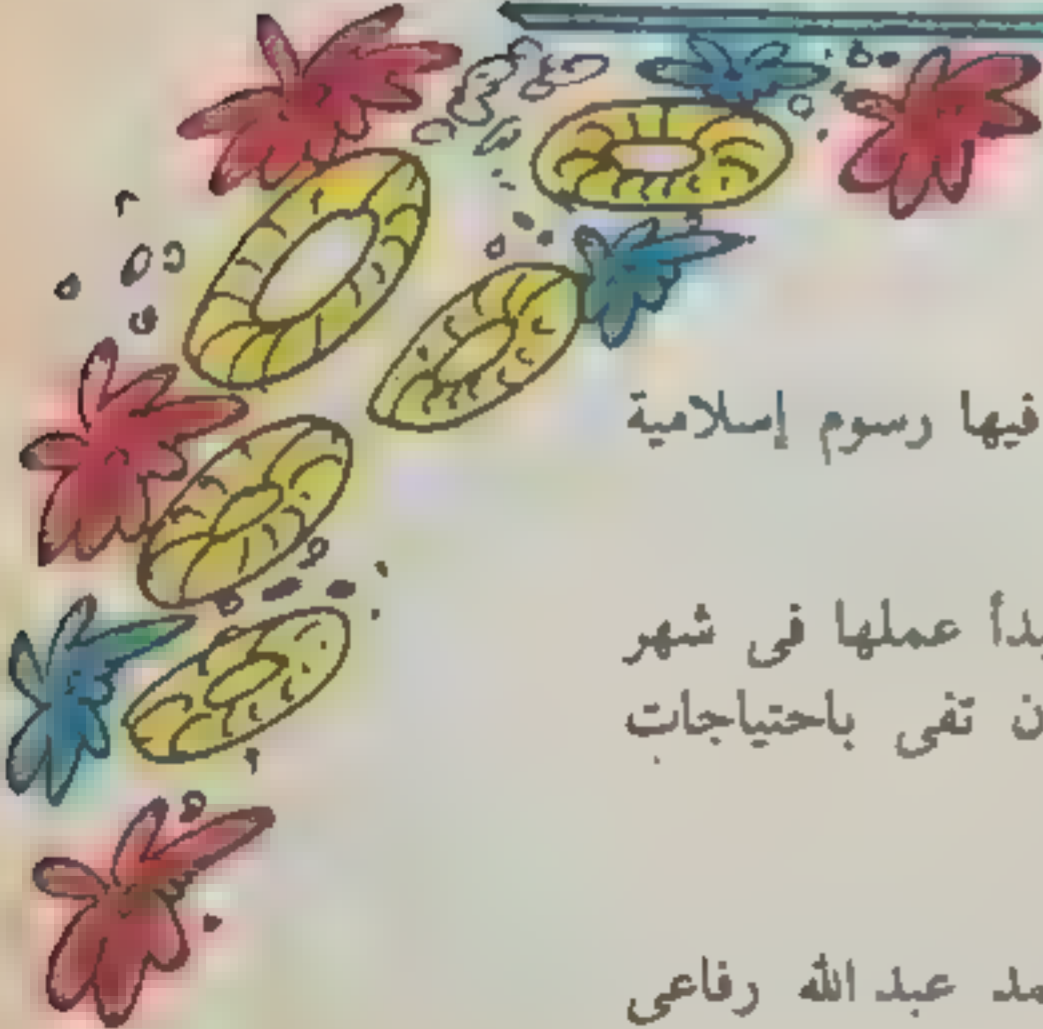 فيها رسوم إسلامية
عملها فى شهر
تفى باحتياجات
عبد الله رفاعى